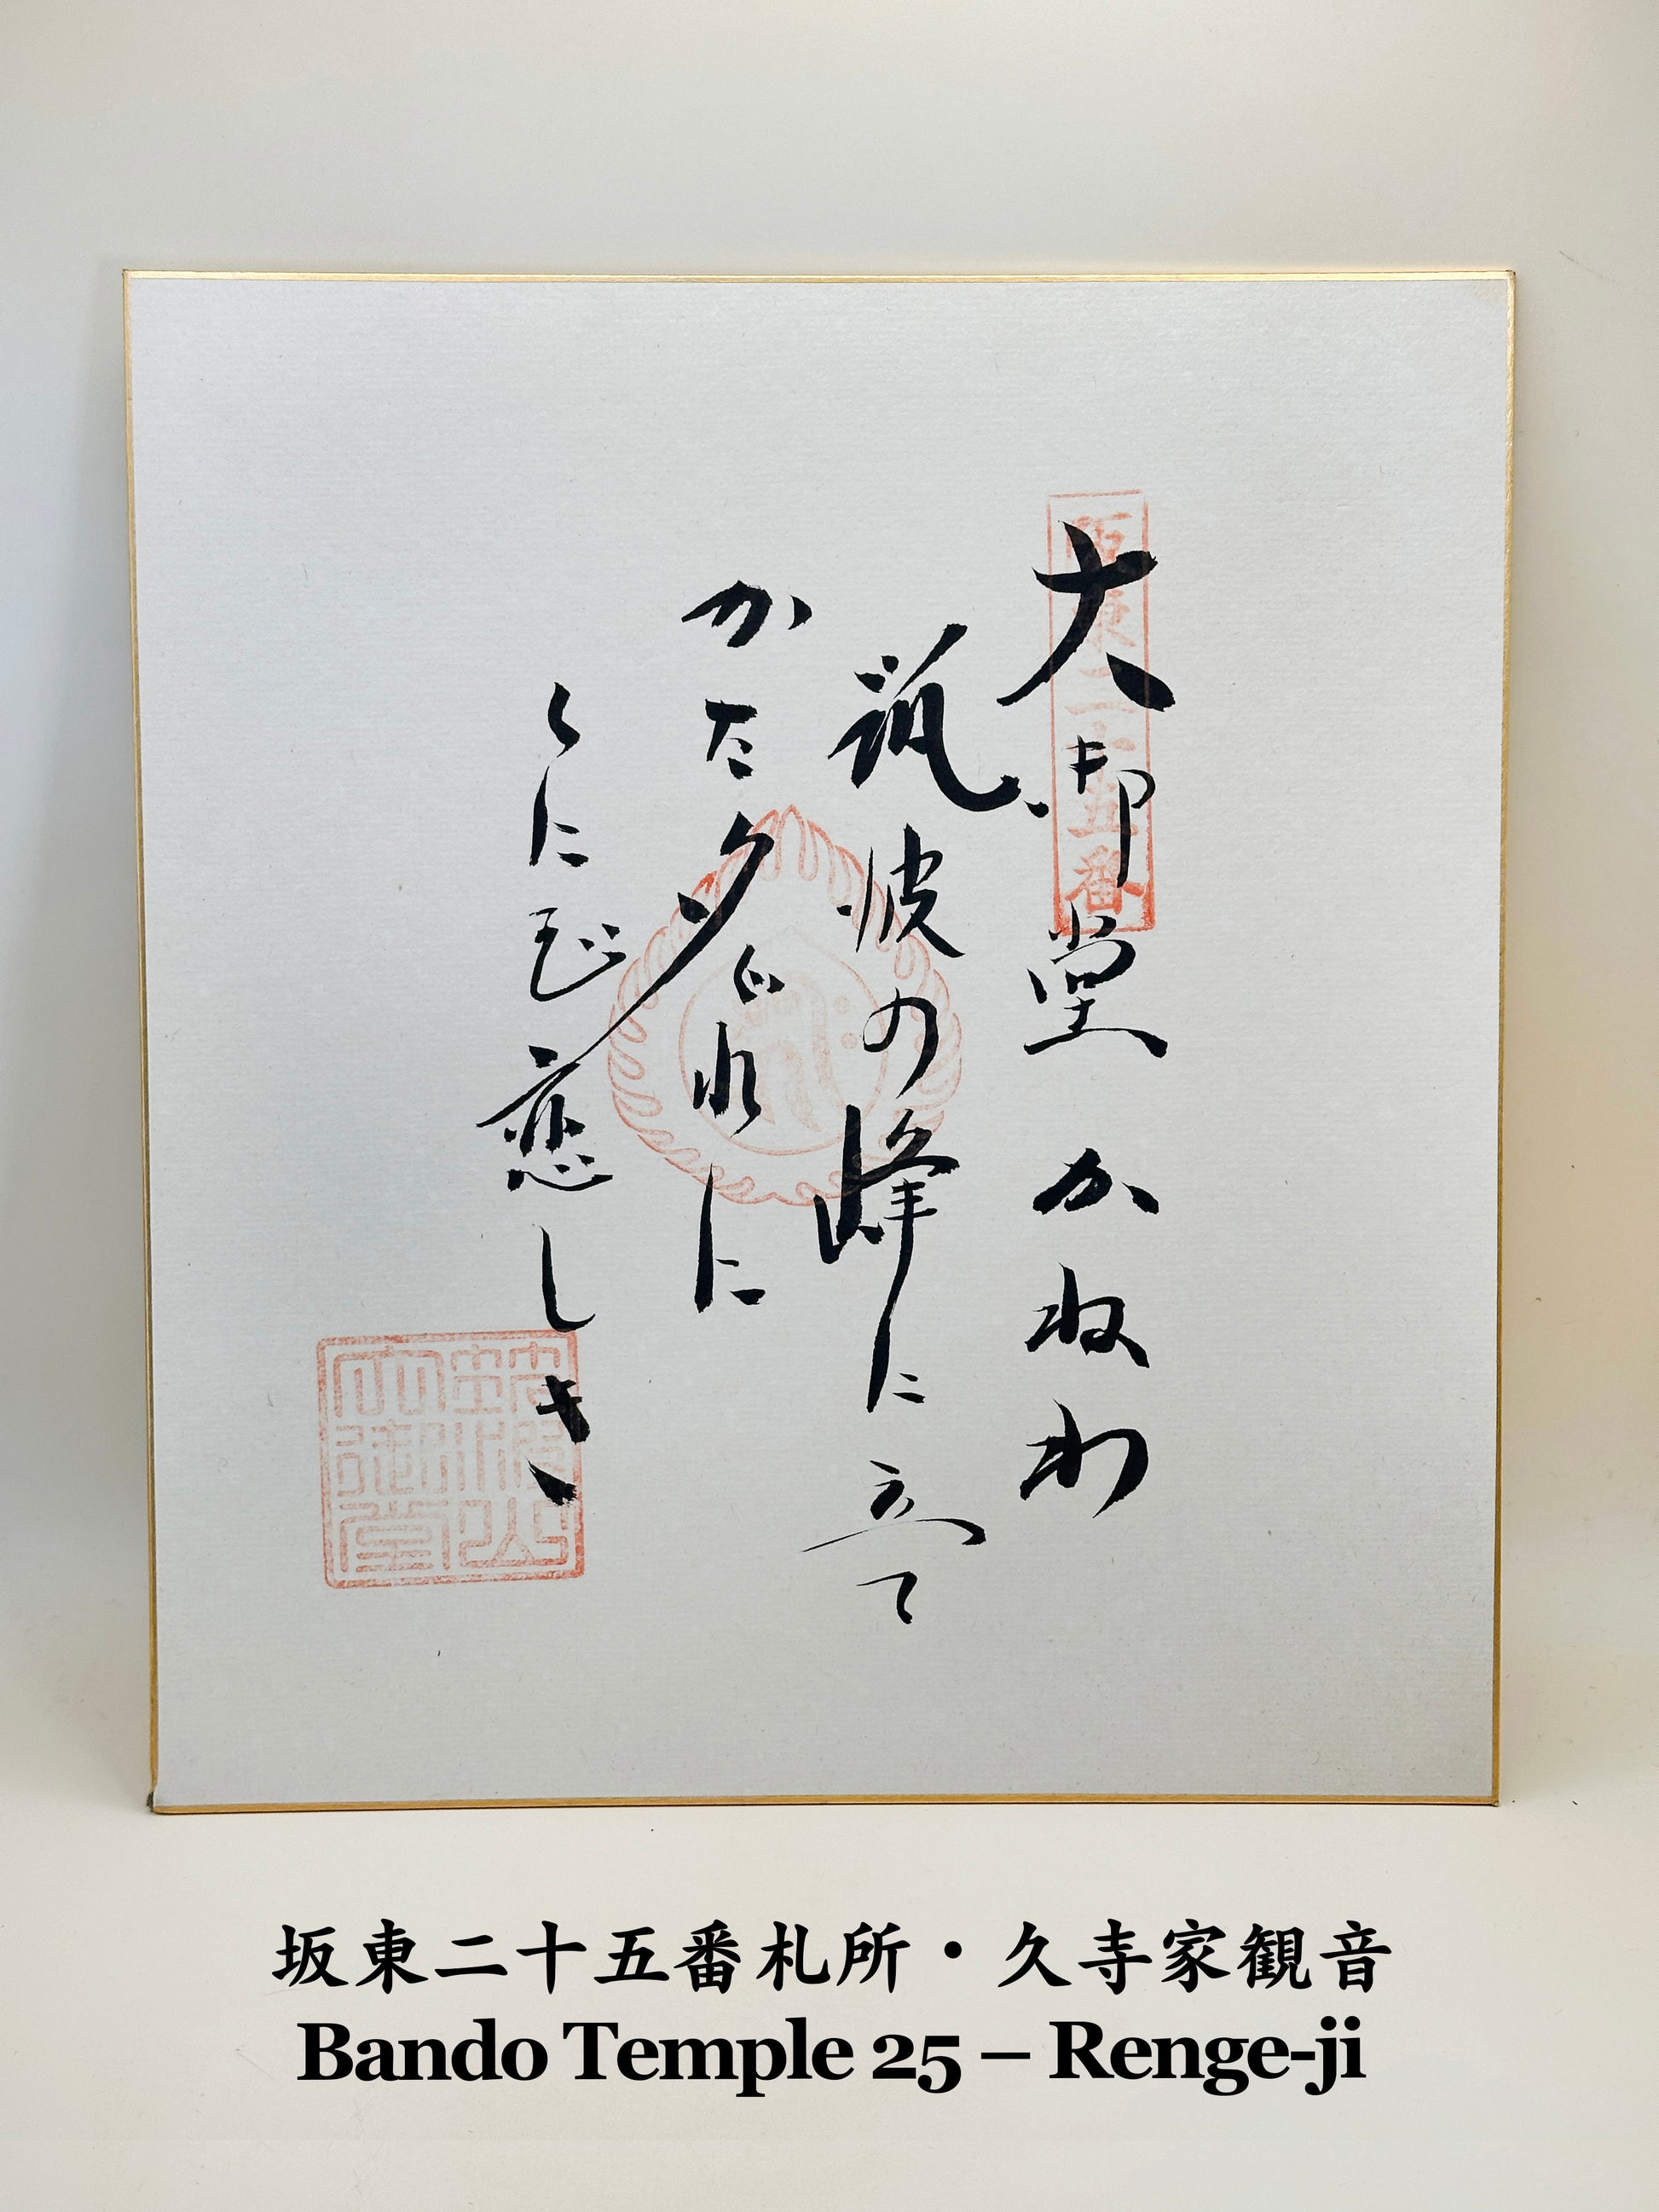 坂東二十五番
大御堂 かねわ
筑波の峰に立て
かた夕ぐれに
くにぞ恋しき
筑波山
大御堂
坂東二十五番札所・久寺家観音
Bando Temple 25 – Renge-ji